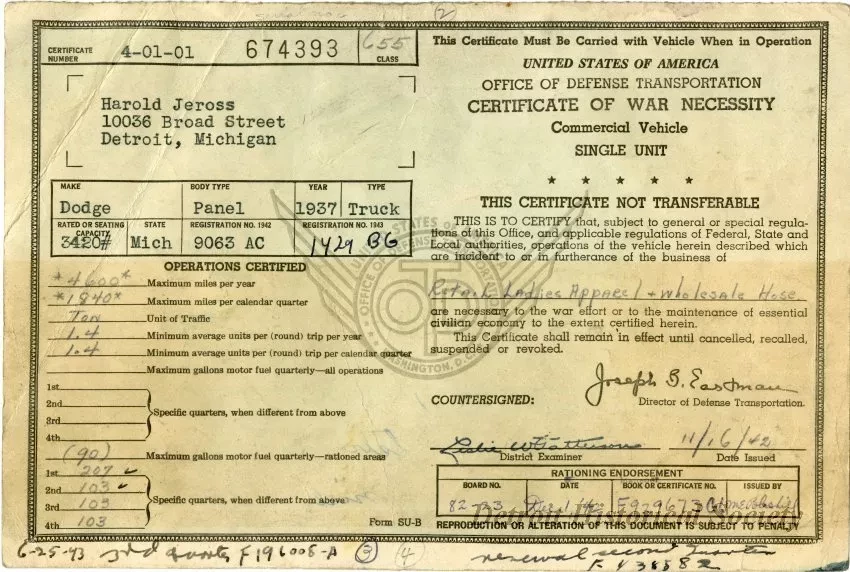 (2)
CERTIFICATE NUMBER 4-01-01 674393 655 CLASS
Harold Jeross
10036 Broad Street
Detroit, Michigan
MAKE BODY TYPE YEAR TYPE
Dodge Panel 1937 Truck
RATED OR SEATING CAPACITY STATE REGISTRATION NO. 1942 REGISTRATION NO. 1943
3420# Mich 9063 AC 1429 BG
OPERATIONS CERTIFIED
*4600* Maximum miles per year
*1840* Maximum miles per calendar quarter
Ton Unit of Traffic
1.4 Minimum average units per (round) trip per year
1.4 Minimum average units per (round) trip per calendar quarter
Maximum gallons motor fuel quarterly—all operations
1st
2nd
3rd
4th
Specific quarters, when different from above
(90) Maximum gallons motor fuel quarterly—rationed areas
1st 207
2nd 103
3rd 103
4th 103
Specific quarters, when different from above
Form SU-B
This Certificate Must Be Carried with Vehicle When in Operation
UNITED STATES OF AMERICA
OFFICE OF DEFENSE TRANSPORTATION
CERTIFICATE OF WAR NECESSITY
Commercial Vehicle
SINGLE UNIT
THIS CERTIFICATE NOT TRANSFERABLE
THIS IS TO CERTIFY that, subject to general or special regula-
tions of this Office, and applicable regulations of Federal, State and
Local authorities, operations of the vehicle herein described which
are incident to or in furtherance of the business of
Retail Ladies Apparel + Wholesale Hose
are necessary to the war effort or to the maintenance of essential
civilian economy to the extent certified herein.
This Certificate shall remain in effect until cancelled, recalled,
suspended or revoked.
Joseph B. Eastman
COUNTERSIGNED: Director of Defense Transportation.
Leslie 11/16/42
District Examiner Date Issued
RATIONING ENDORSEMENT
BOARD NO. DATE BOOK OR CERTIFICATE NO. ISSUED BY
82-23
Detroit Historical Society
REPRODUCTION OR ALTERATION OF THIS DOCUMENT IS SUBJECT TO PENALTY
6-25-43 3rd quarter F196008-A (3) (4) renewal second quarter
F 438582